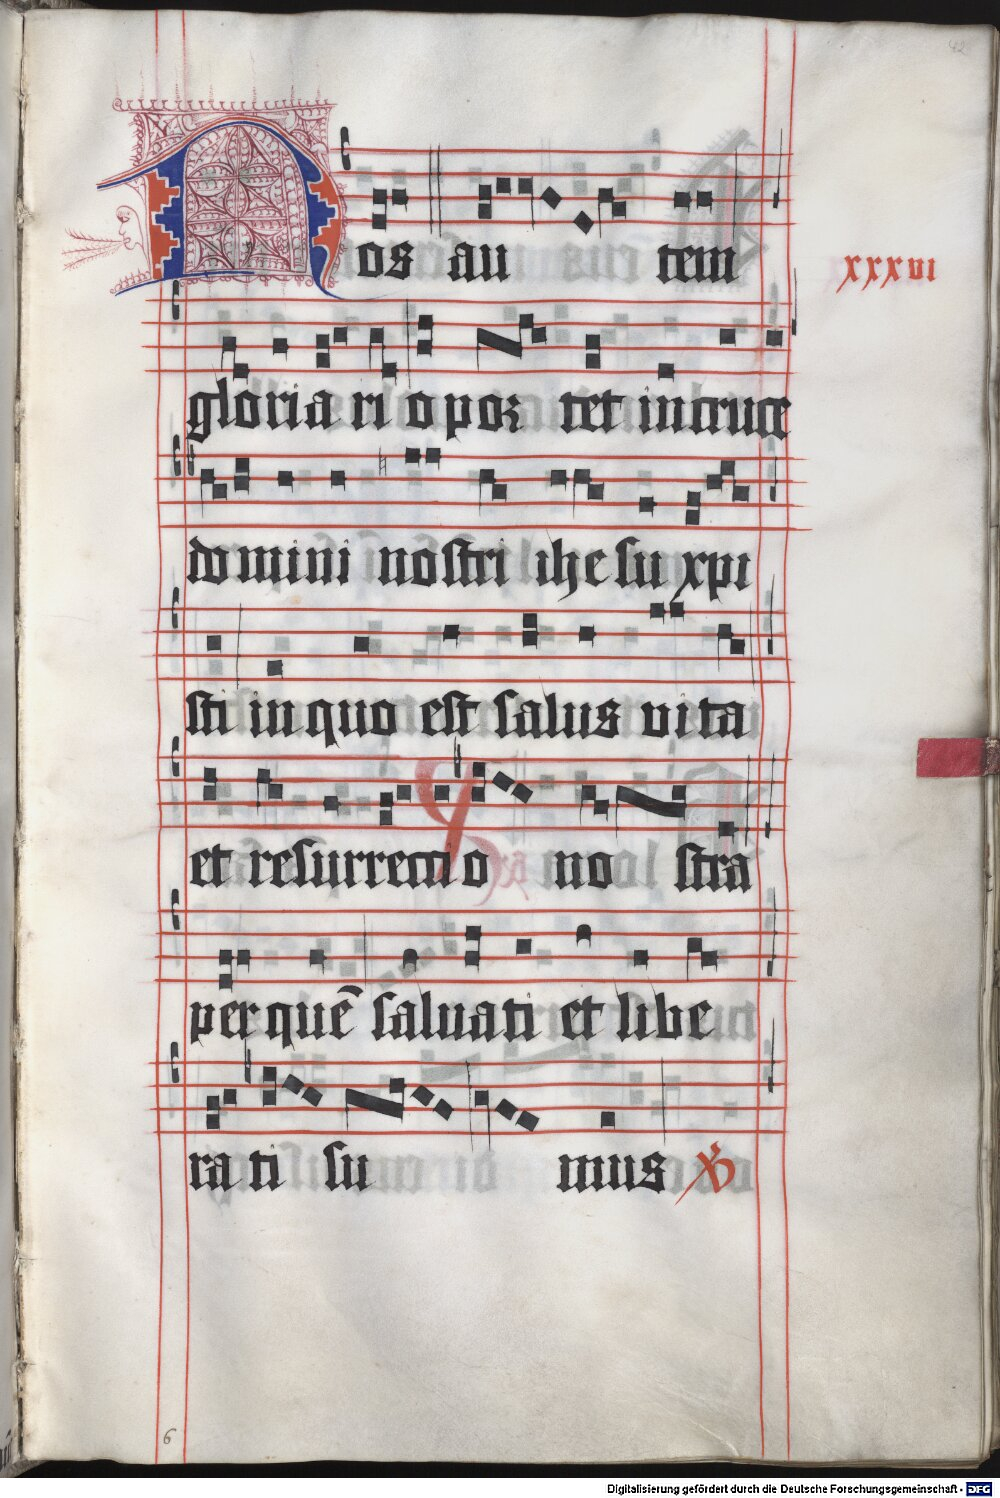 42
Nos au tem
xxxvi
gloria ri opor tet in cruce
domini nostri ihesu xpi
sti in quo est salus vita
et resurrectio no stra
per quē salvati et libe
rati su mus
6
Digitalisierung gefördert durch die Deutsche Forschungsgemeinschaft - DFG